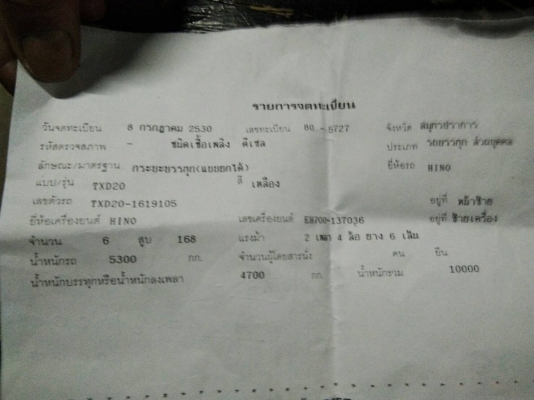 รายการจดทะเบียน
วันจดทะเบียน 8 กรกฎาคม 2530 เลขทะเบียน 80-5727 จังหวัด สมุทรปราการ
รหัสตรวจสภาพ - ชนิดเชื้อเพลิง ดีเซล ประเภท รถบรรทุก ส่วนบุคคล
ลักษณะ/มาตรฐาน กระบะบรรทุก(แบบยกได้) ยี่ห้อรถ HINO
แบบ/รุ่น TXD20 สี เหลือง
เลขตัวรถ TXD20-1619105 อยู่ที่ หน้าซ้าย
ยี่ห้อเครื่องยนต์ HINO เลขเครื่องยนต์ EH700-137036 อยู่ที่ ซ้ายเครื่อง
จำนวน 6 สูบ 168 แรงม้า 2 เพลา 4 ล้อ ยาง 6 เส้น
น้ำหนักรถ 5300 กก. จำนวนผู้โดยสารนั่ง คน ยืน
น้ำหนักบรรทุกหรือน้ำหนักลงเพลา 4700 กก. น้ำหนักรวม 10000